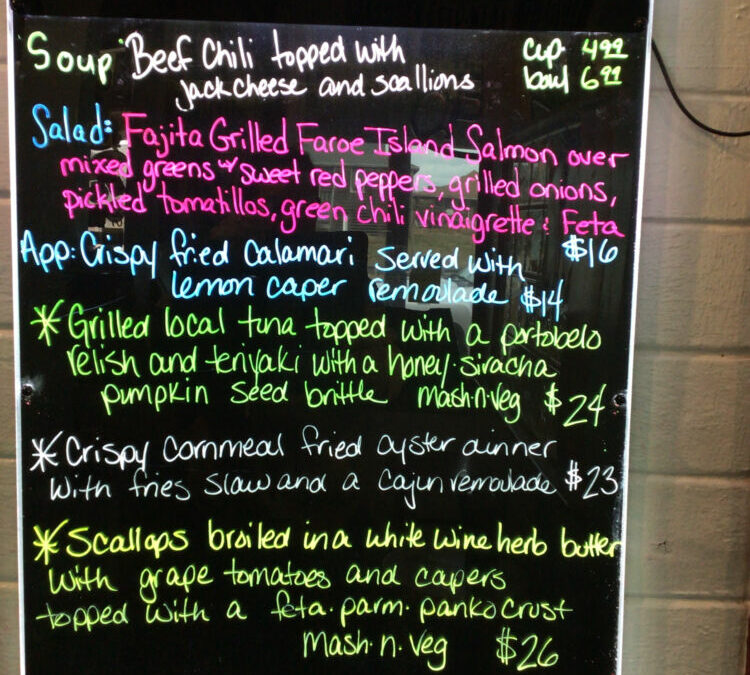 Soup Beef Chili topped with cup 4.99
jack cheese and scallions bowl 6.99
Salad: Fajita Grilled Faroe Island Salmon over
mixed greens w/ sweet red peppers, grilled onions,
pickled tomatillos, green chili vinaigrette & Feta
$16
App: Crispy fried Calamari served with
lemon caper remoulade $14
*Grilled local tuna topped with a portobelo
relish and teriyaki with a honey·siracha
pumpkin seed brittle mash·n·veg $24
*Crispy cornmeal fried oyster dinner
with fries slaw and a cajun remoulade $23
*Scallops broiled in a white wine herb butter
with grape tomatoes and capers
topped with a feta·parm·panko crust
mash·n·veg $26